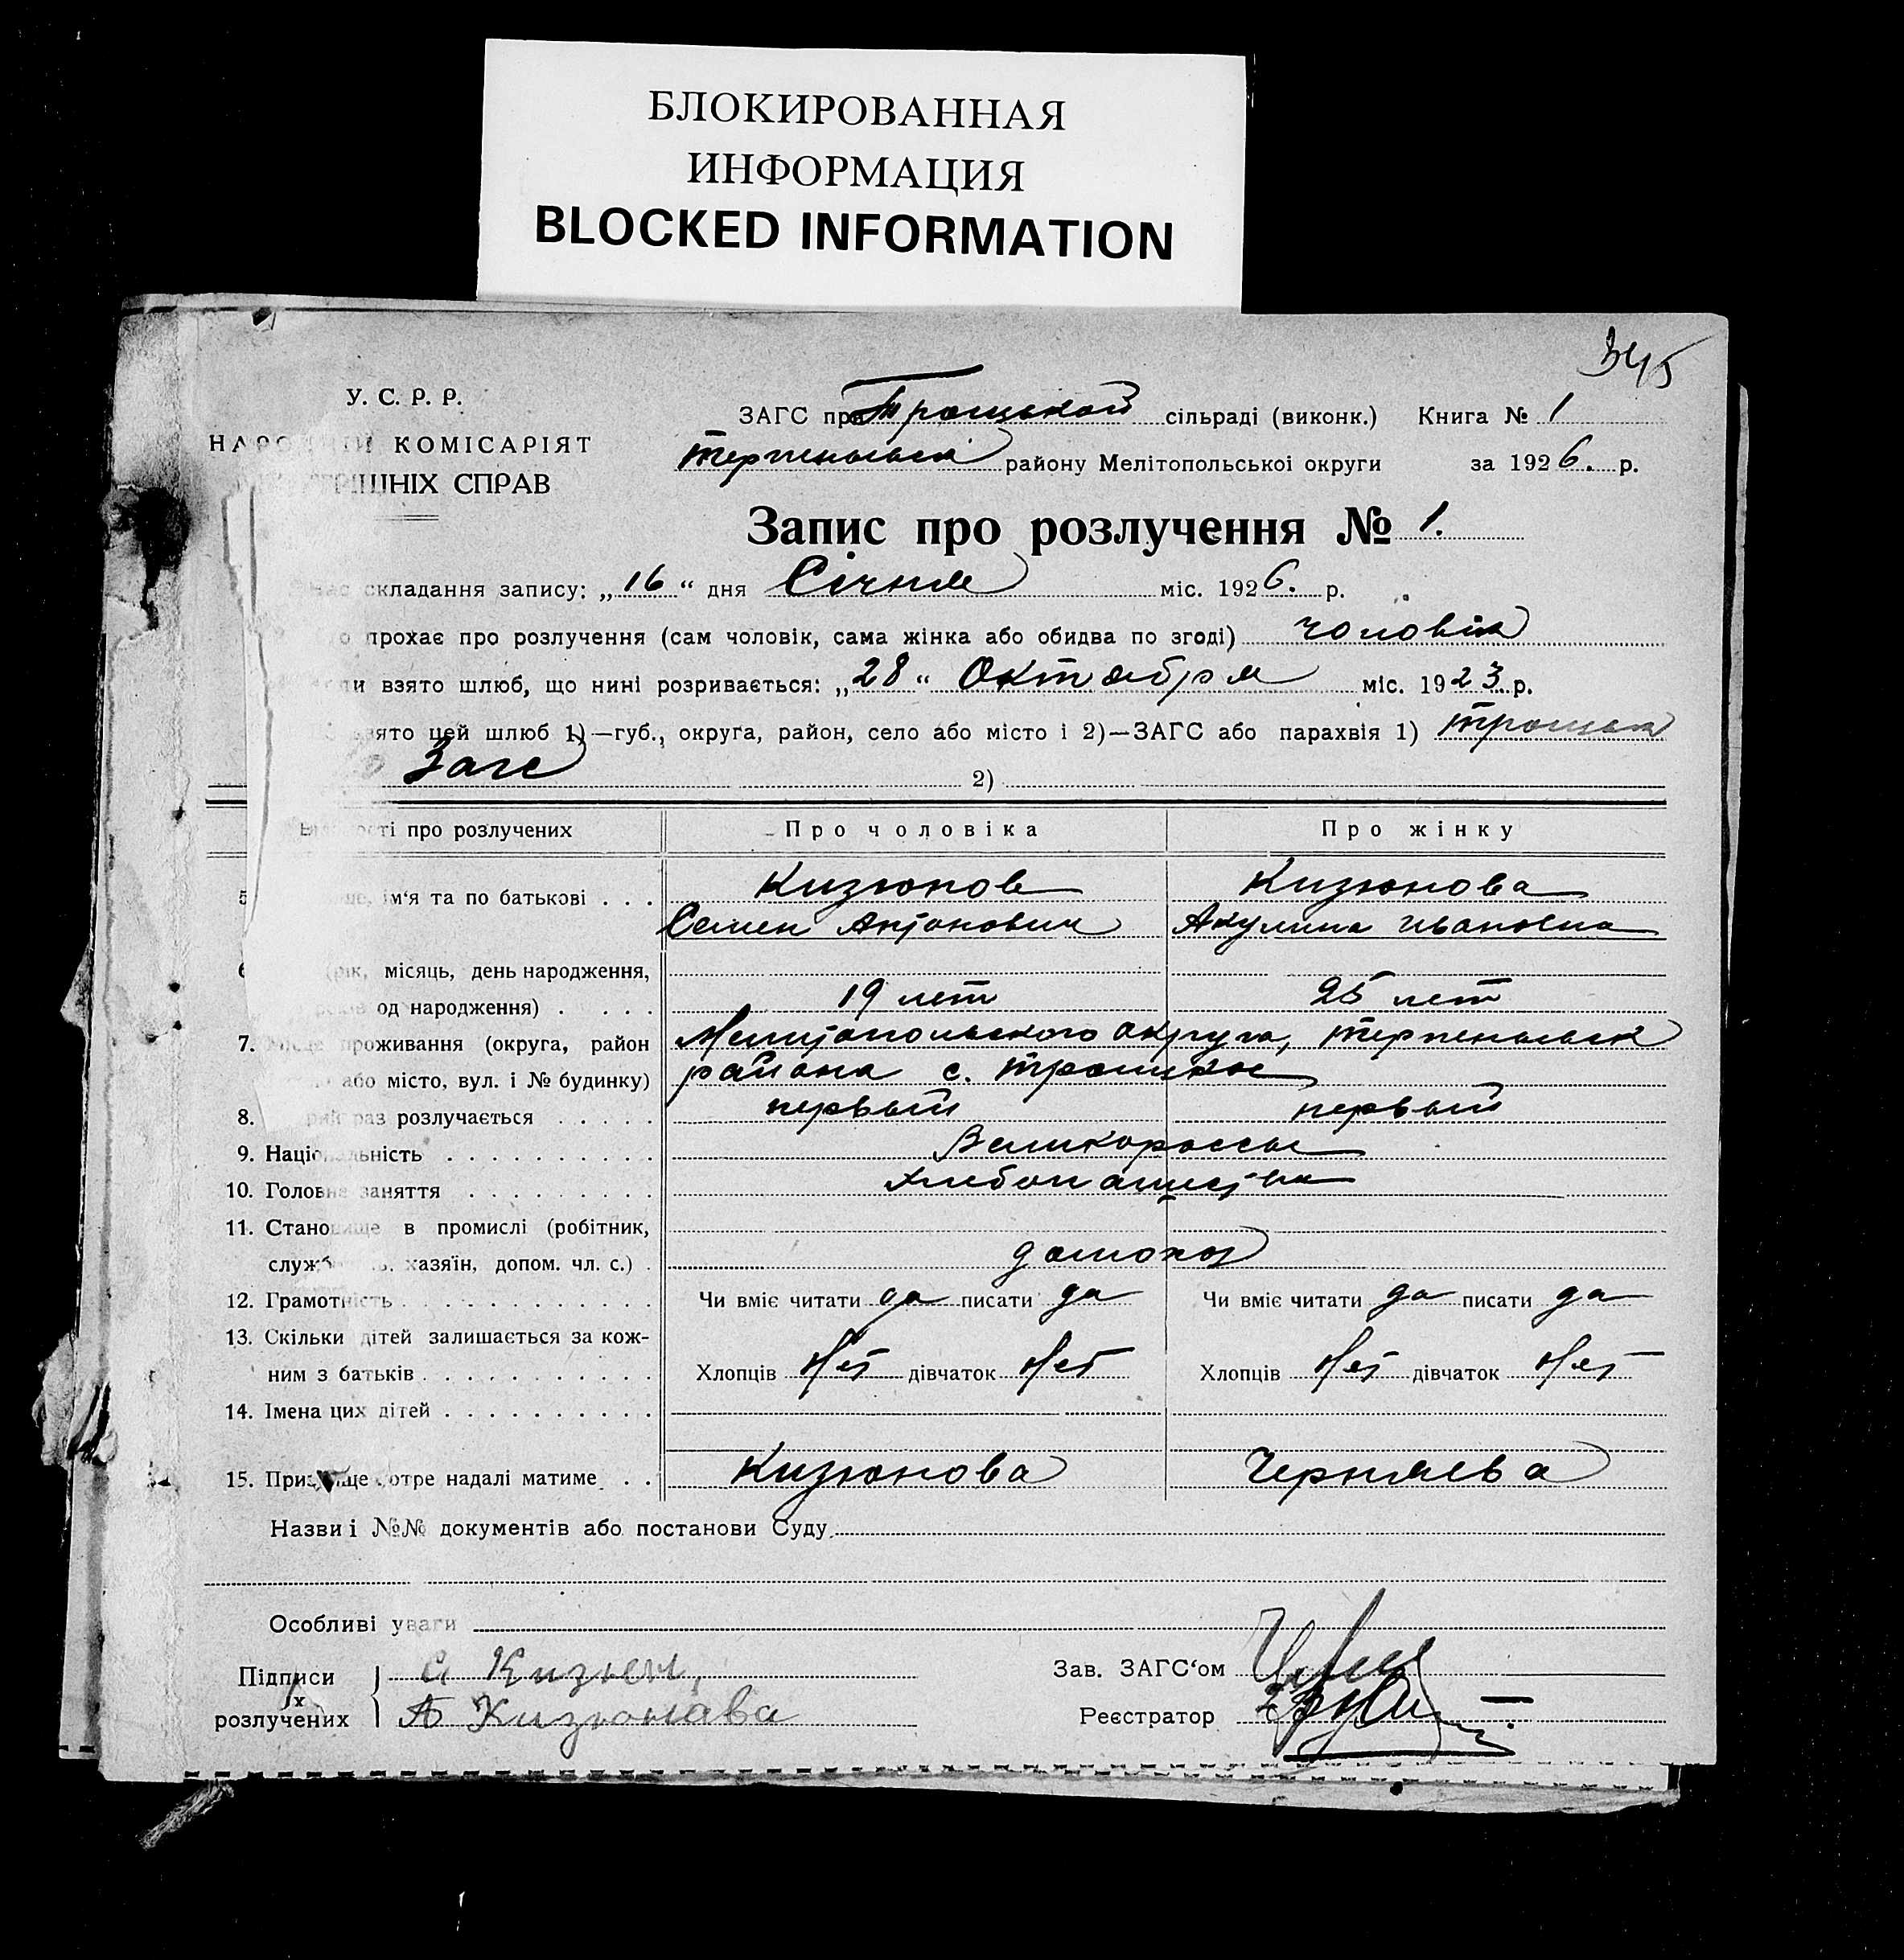 БЛОКИРОВАННАЯ
ИНФОРМАЦИЯ
BLOCKED INFORMATION
345
У. С. Р. Р.
КОМІСАРІЯТ
СПРАВ
ЗАГС при Троцькой сільраді (виконк.) Книга № 1
району Мелітопольської округи за 1926. р.
Запис про розлучення № 1.
складання запису: „16“ дня Січня міс. 1926. р.
прохає про розлучення (сам чоловік, сама жінка або обидва по згоді) чоловік
взято шлюб, що нині розривається: „28“ Октября міс. 1923. р.
цей шлюб 1)—губ., округа, район, село або місто і 2)—ЗАГС або парахвія 1)
Загс 2)
про розлучених Про чоловіка Про жінку
ім'я та по батькові . . . Кизюнов Кизюнова
Семен Антонович Акулина Ивановна
місяць, день народження,
од народження) . . . . 19 лет 25 лет
7. проживання (округа, район Мелитопольского округа,
або місто, вул. і № будинку) района с.
8. раз розлучається . . . . . первый первый
9. Національність . . . . . . . . . . Великороссы
10. Головне заняття . . . . . . . . . Хлебопашество
11. Становище в промислі (робітник,
хазяїн, допом. чл. с.) .
12. Грамотність . . . . . . . . . . . . Чи вміє читати да писати да Чи вміє читати да писати да
13. Скільки дітей залишається за кож-
ним з батьків . . . . . . . . . . . Хлопців Нет дівчаток Нет Хлопців Нет дівчаток Нет
14. Імена цих дітей . . . . . . . . . .
15. Призвище котре надалі матиме . . Кизюнова Черняева
Назви і №№ документів або постанови Суду
Особливі уваги
Підписи
їх
розлучених
А Кизюнава
Зав. ЗАГС'ом
Реєстратор